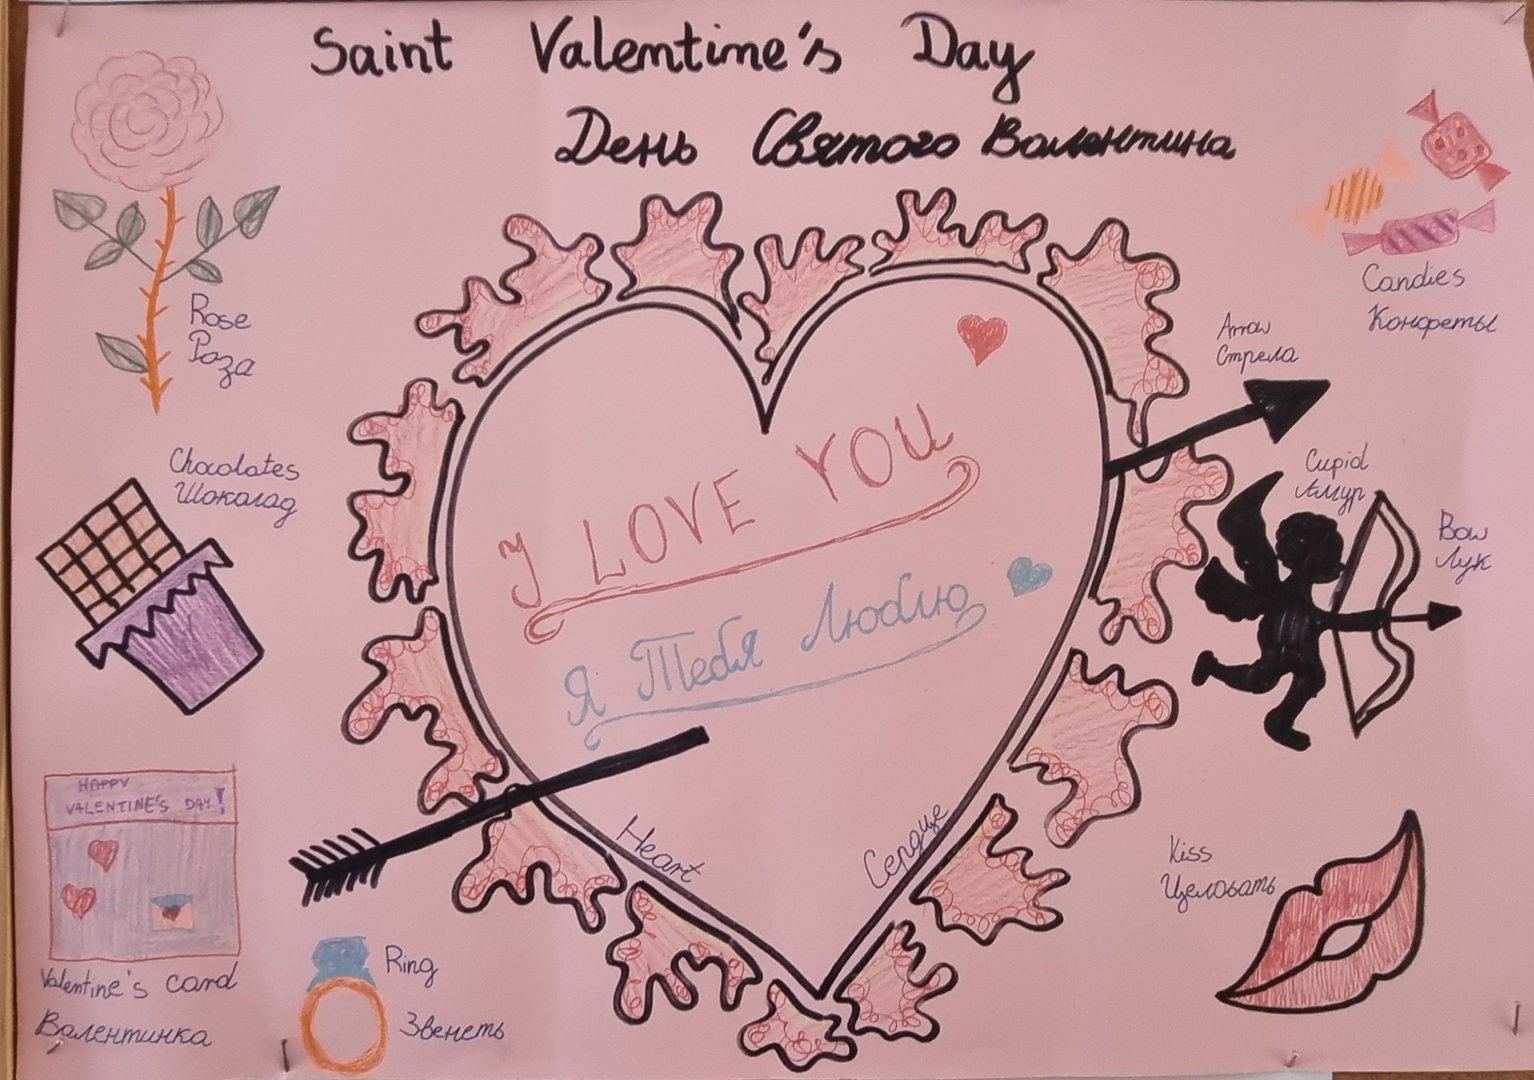 Saint Valentine's Day
День Святого Валентина
Rose
Роза
Candies
Конфеты
Arrow
Стрела
Chocolates
Шоколад
I LOVE YOU
Я Тебя Люблю
Cupid
Амур
Bow
Лук
HAPPY
VALENTINE'S DAY!
Heart
Сердце
Kiss
Целовать
Valentine's card
Валентинка
Ring
Звенеть